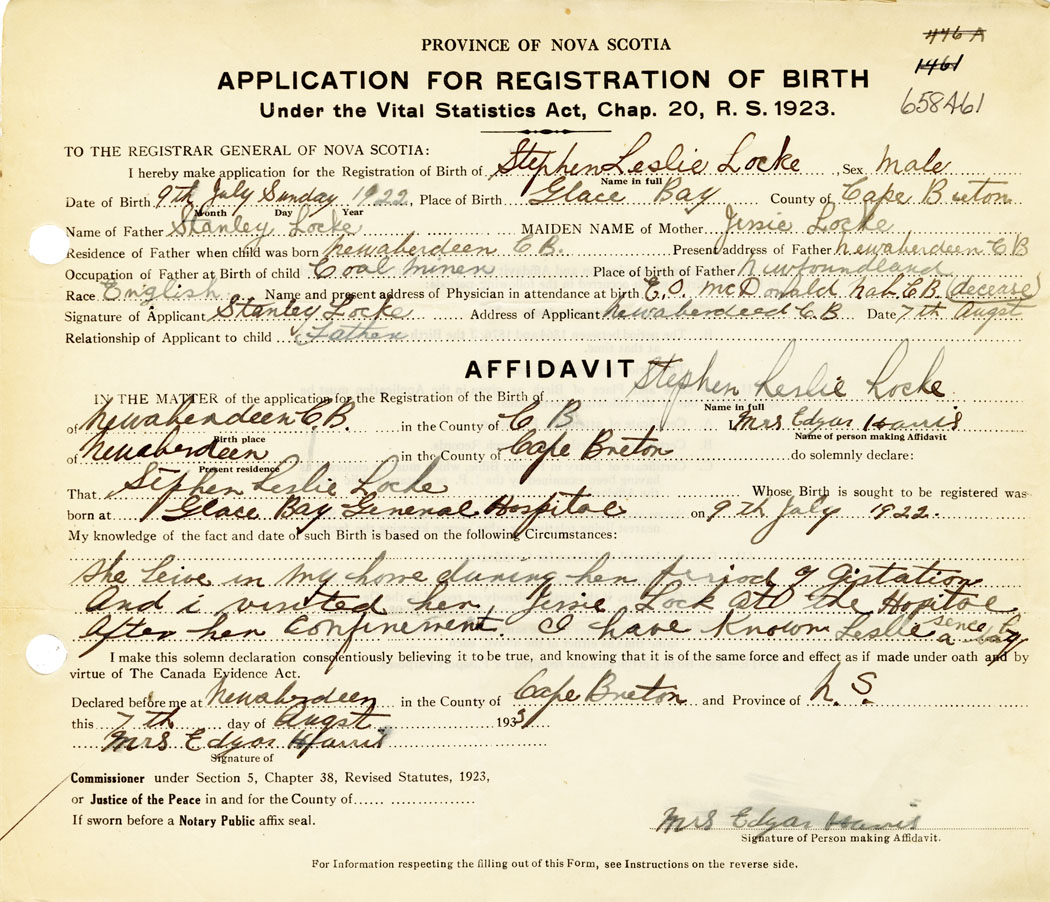 446 A
PROVINCE OF NOVA SCOTIA
1461
APPLICATION FOR REGISTRATION OF BIRTH
658461
Under the Vital Statistics Act, Chap. 20, R. S. 1923.
TO THE REGISTRAR GENERAL OF NOVA SCOTIA:
I hereby make application for the Registration of Birth of Stephen Leslie Locke, Sex Male
Name in full
Date of Birth 9th July Sunday 1922, Place of Birth Glace Bay County of Cape Breton
Month Day Year
Name of Father Stanley Locke MAIDEN NAME of Mother Jessie Locke
Residence of Father when child was born Newaberdeen C B. Present address of Father Newaberdeen C B
Occupation of Father at Birth of child Coal miner Place of birth of Father Newfoundland
Race English Name and present address of Physician in attendance at birth E.O. McDonald C.B. (decease)
Signature of Applicant Stanley Locke Address of Applicant Newaberdeed C.B. Date 7th Augst
Relationship of Applicant to child Father
AFFIDAVIT
IN THE MATTER of the application for the Registration of the Birth of Stephen Leslie Locke
Name in full
of Newaberdeen C.B. in the County of C B I, Mrs Edgar Harris
Birth place Name of person making Affidavit
of Newaberdeen in the County of Cape Breton do solemnly declare:
Present residence
That Stephen Leslie Locke Whose Birth is sought to be registered was
born at Glace Bay General Hospital on 9th July 1922.
My knowledge of the fact and date of such Birth is based on the following Circumstances:
She Leive in my home during her period of Gistation
And i visited her, Jessie Lock at the Hopital
After her confinement. I have known Leslie sence a
I make this solemn declaration conscientiously believing it to be true, and knowing that it is of the same force and effect as if made under oath and by
virtue of The Canada Evidence Act.
Declared before me at Newaberdeen in the County of Cape Breton and Province of N. S.
this 7th day of Augst. 1933
Mrs Edgar Harris
Signature of
Commissioner under Section 5, Chapter 38, Revised Statutes, 1923,
or Justice of the Peace in and for the County of
If sworn before a Notary Public affix seal.
Mrs Edgar Harris
Signature of Person making Affidavit.
For Information respecting the filling out of this Form, see Instructions on the reverse side.